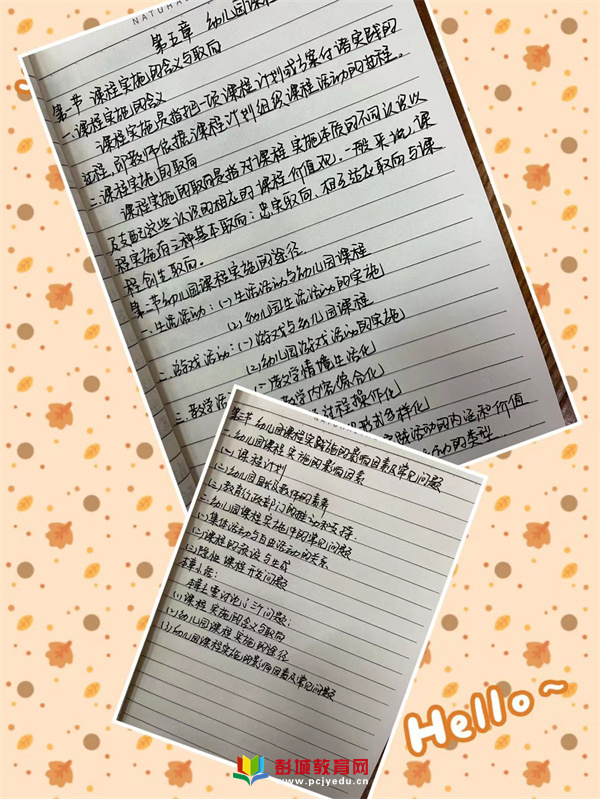 NATURA
第五章 幼儿园课程
第一节 课程实施的含义与取向
一.课程实施的含义
课程实施是指把一项课程计划或方案付诸实践的
过程,即教师依据课程计划组织课程活动的过程。
二.课程实施的取向
课程实施的取向是指对课程实施本质的不同认识以
及支配这些认识的相应的课程价值观。一般来说,课
程实施有三种基本取向:忠实取向、相互适应取向与课
程创生取向。
第二节幼儿园课程实施的途径
一.生活活动:(1)生活活动与幼儿园课程
(2)幼儿园生活活动的实施
二.游戏活动:(1)游戏与幼儿园课程
(2)幼儿园游戏活动的实施
三.教学活 (1)教学情境生活化
教学内容综合化
过程操作化
形式多样化
实践活动的内涵和价值
的类型
第三节 幼儿园课程实施的影响因素及常见问题
一.幼儿园课程实施的影响因素
(1)课程计划
(2)幼儿园园长及教师的素养
(3)教育行政部门的推动和支持
二.幼儿园课程实施中的常见问题
(1)集体活动与自由活动的关系
(2)课程的预设与生成
(3)隐性课程开发问题
本章小结:
本章主要讨论了三个问题:
(1)课程实施的含义与取向
(2)幼儿园课程实施的途径
(3)幼儿园课程实施的影响因素及常见问题
Hello~
彭城教育网
www.pcjyedu.cn